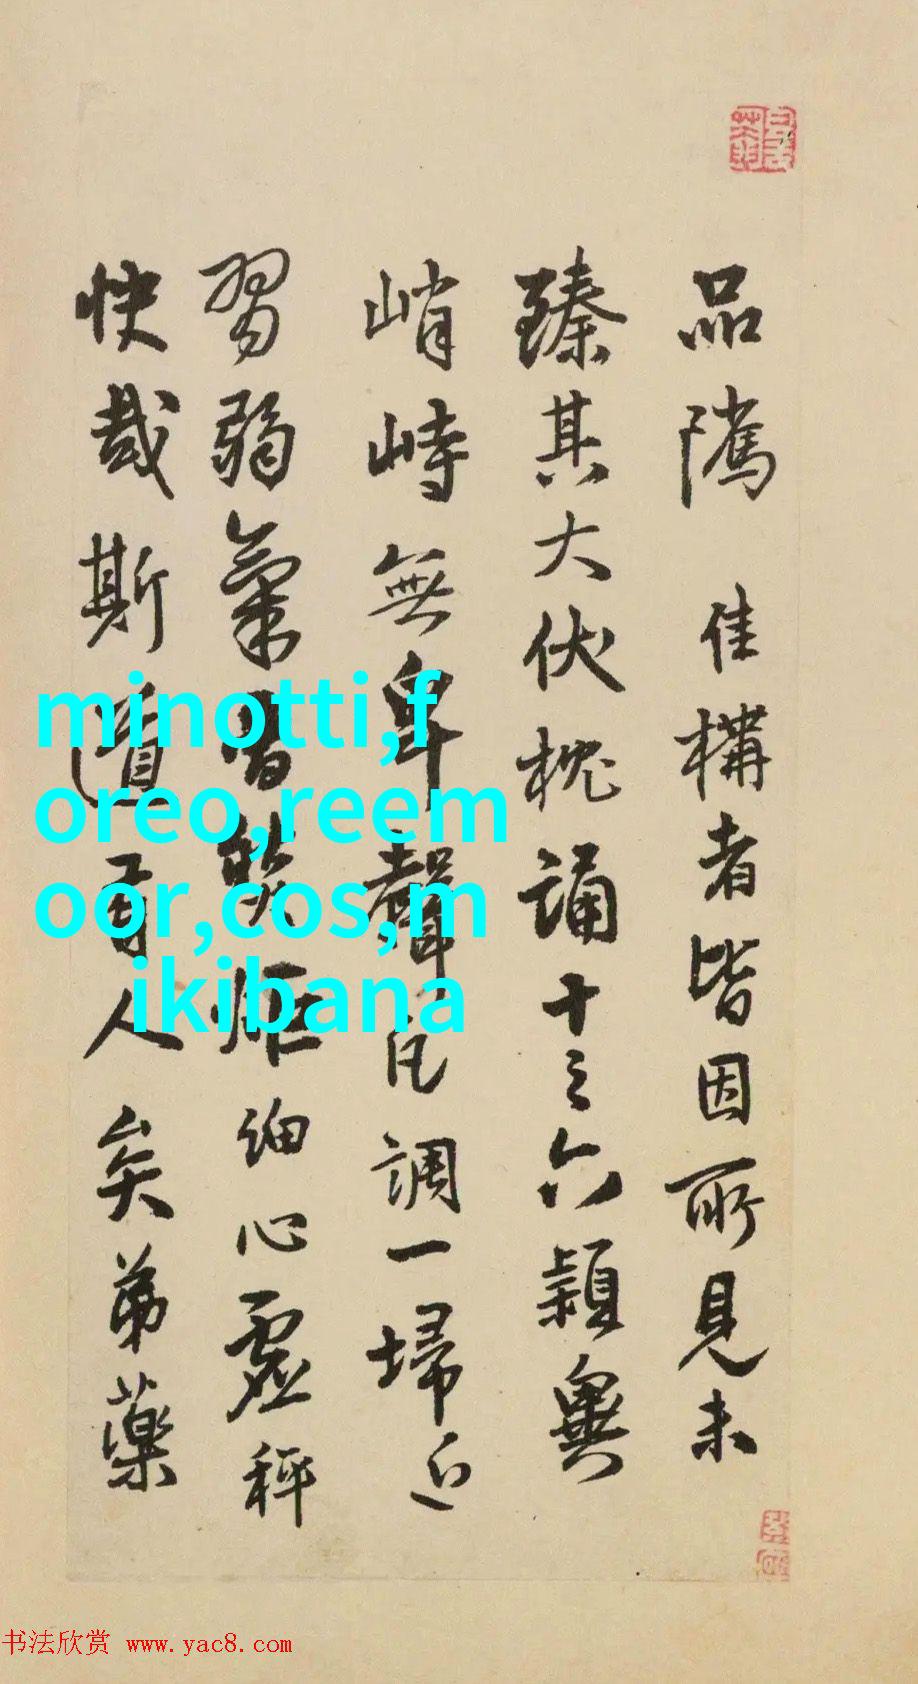 品隲佳構者皆因所見未
臻其大伏枕誦十之六穎異
峭峙無卑聲凡調一埽近
習弱氣細心虛秤
快哉斯道有人矣弟藥
minotti,f
oreo,reem
oor,cos,m
ikibana
书法欣赏 www.yac8.com